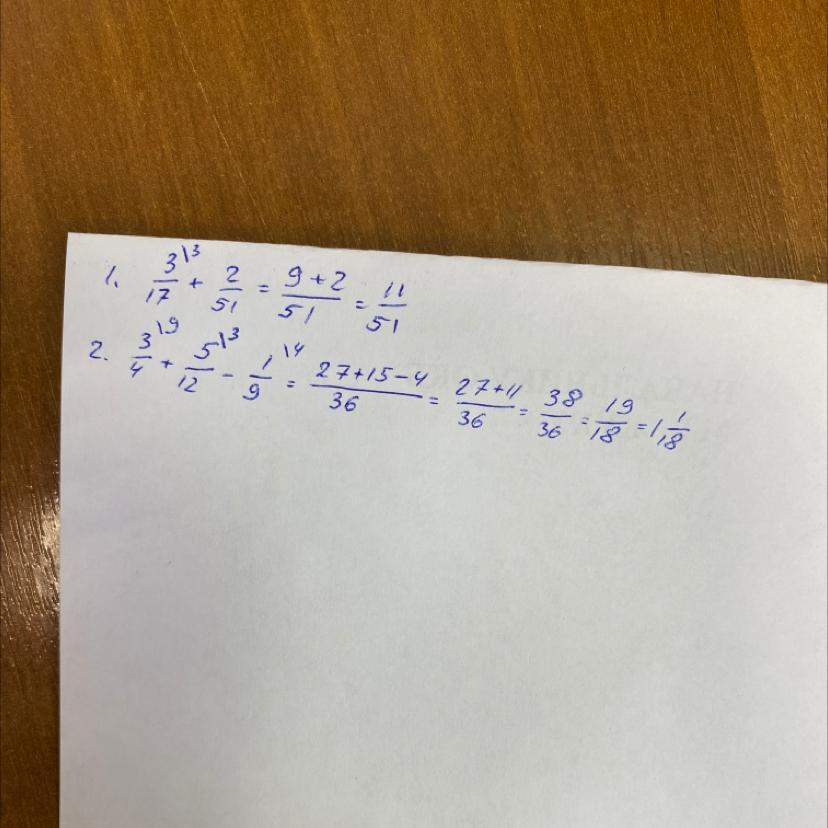 1. 3\3/17 + 2/51 = 9+2/51 = 11/51
2. 3\9/4 + 5\3/12 - 1\4/9 = 27+15-4/36 = 27+11/36 = 38/36 = 19/18 = 1 1/18